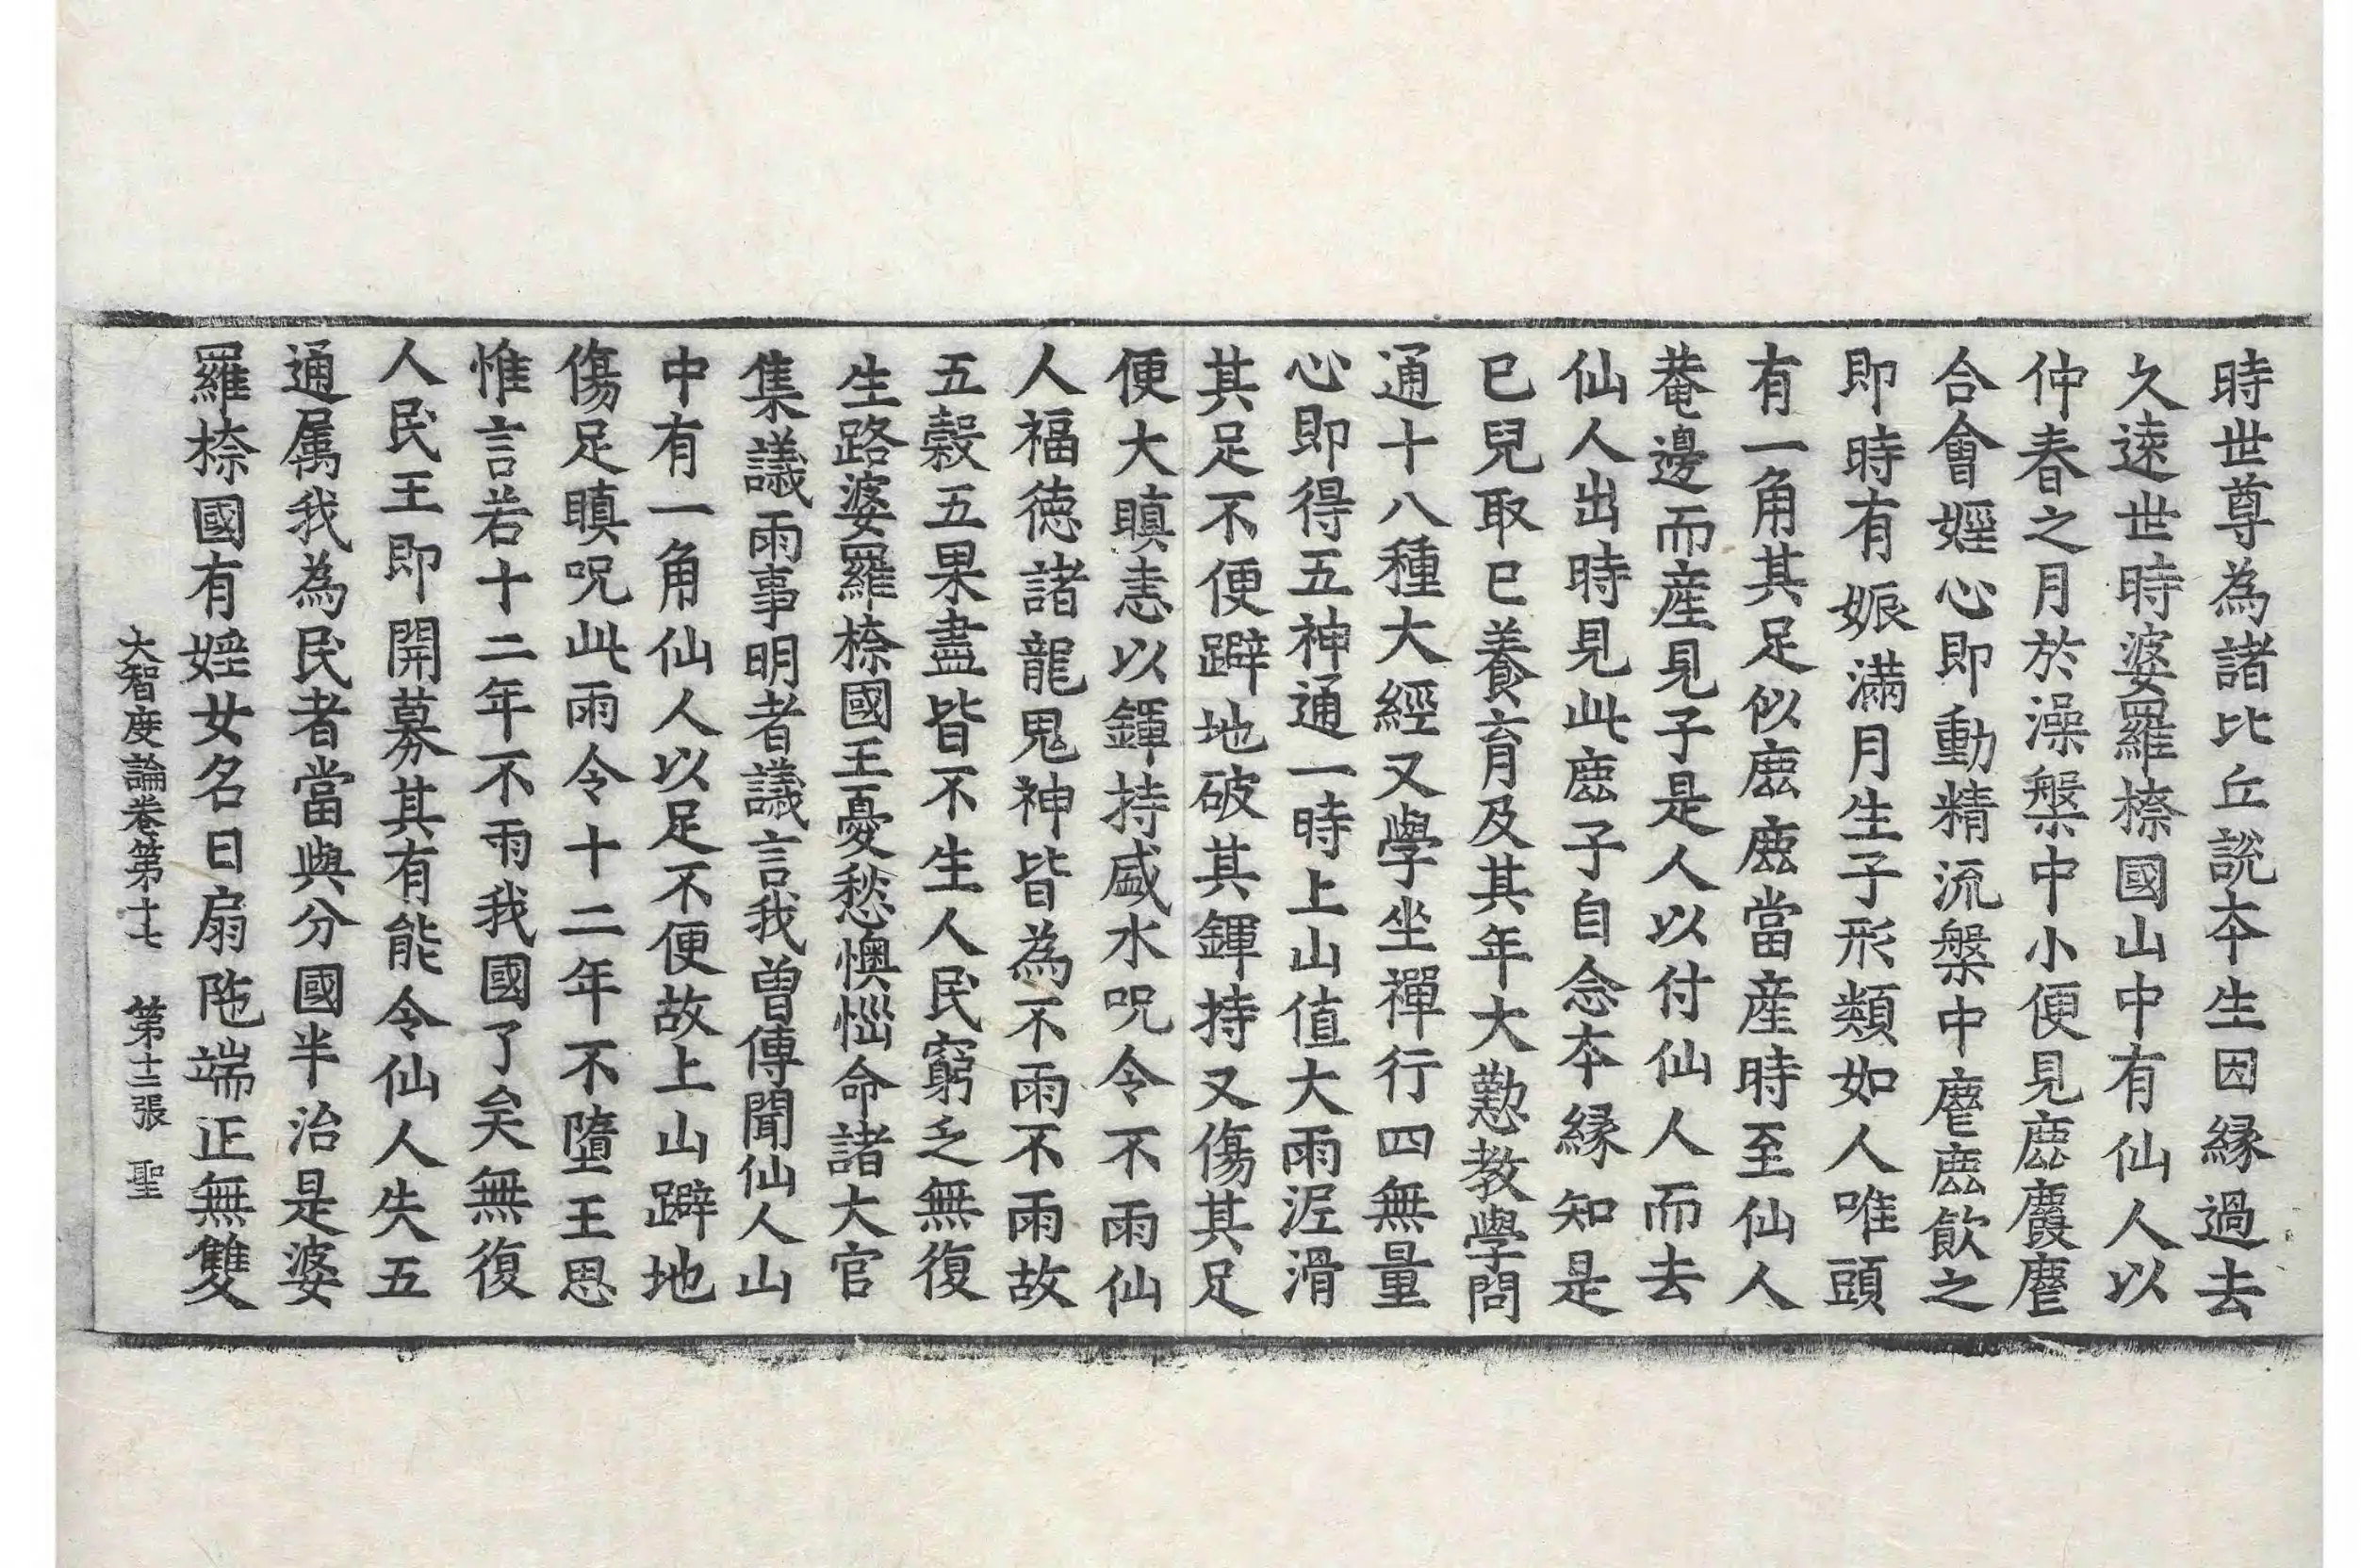 時世尊為諸比丘說本生因緣過去
久遠世時婆羅㮈國山中有仙人以
仲春之月於澡槃中小便見鹿麚麀
合會婬心即動精流槃中麀鹿飲之
即時有娠滿月生子形類如人唯頭
有一角其足似鹿鹿當産時至仙人
菴邊而産見子是人以付仙人而去
仙人出時見此鹿子自念本緣知是
已兒取已養育及其年大懃教學問
通十八種大經又學坐禪行四無量
心即得五神通一時上山值大雨泥滑
其足不便躃地破其鍕持又傷其足
便大瞋恚以鍕持盛水呪令不雨仙
人福德諸龍鬼神皆為不雨不雨故
五穀五果盡皆不生人民窮乏無復
生路婆羅㮈國王憂愁懊惱命諸大官
集議雨事明者議言我曾傳聞仙人山
中有一角仙人以足不便故上山躃地
傷足瞋呪此雨令十二年不墮王思
惟言若十二年不雨我國了矣無復
人民王即開募其有能令仙人失五
通属我為民者當與分國半治是婆
羅㮈國有婬女名曰扇陁端正無雙
大智度論卷第十七 第十二張 聖